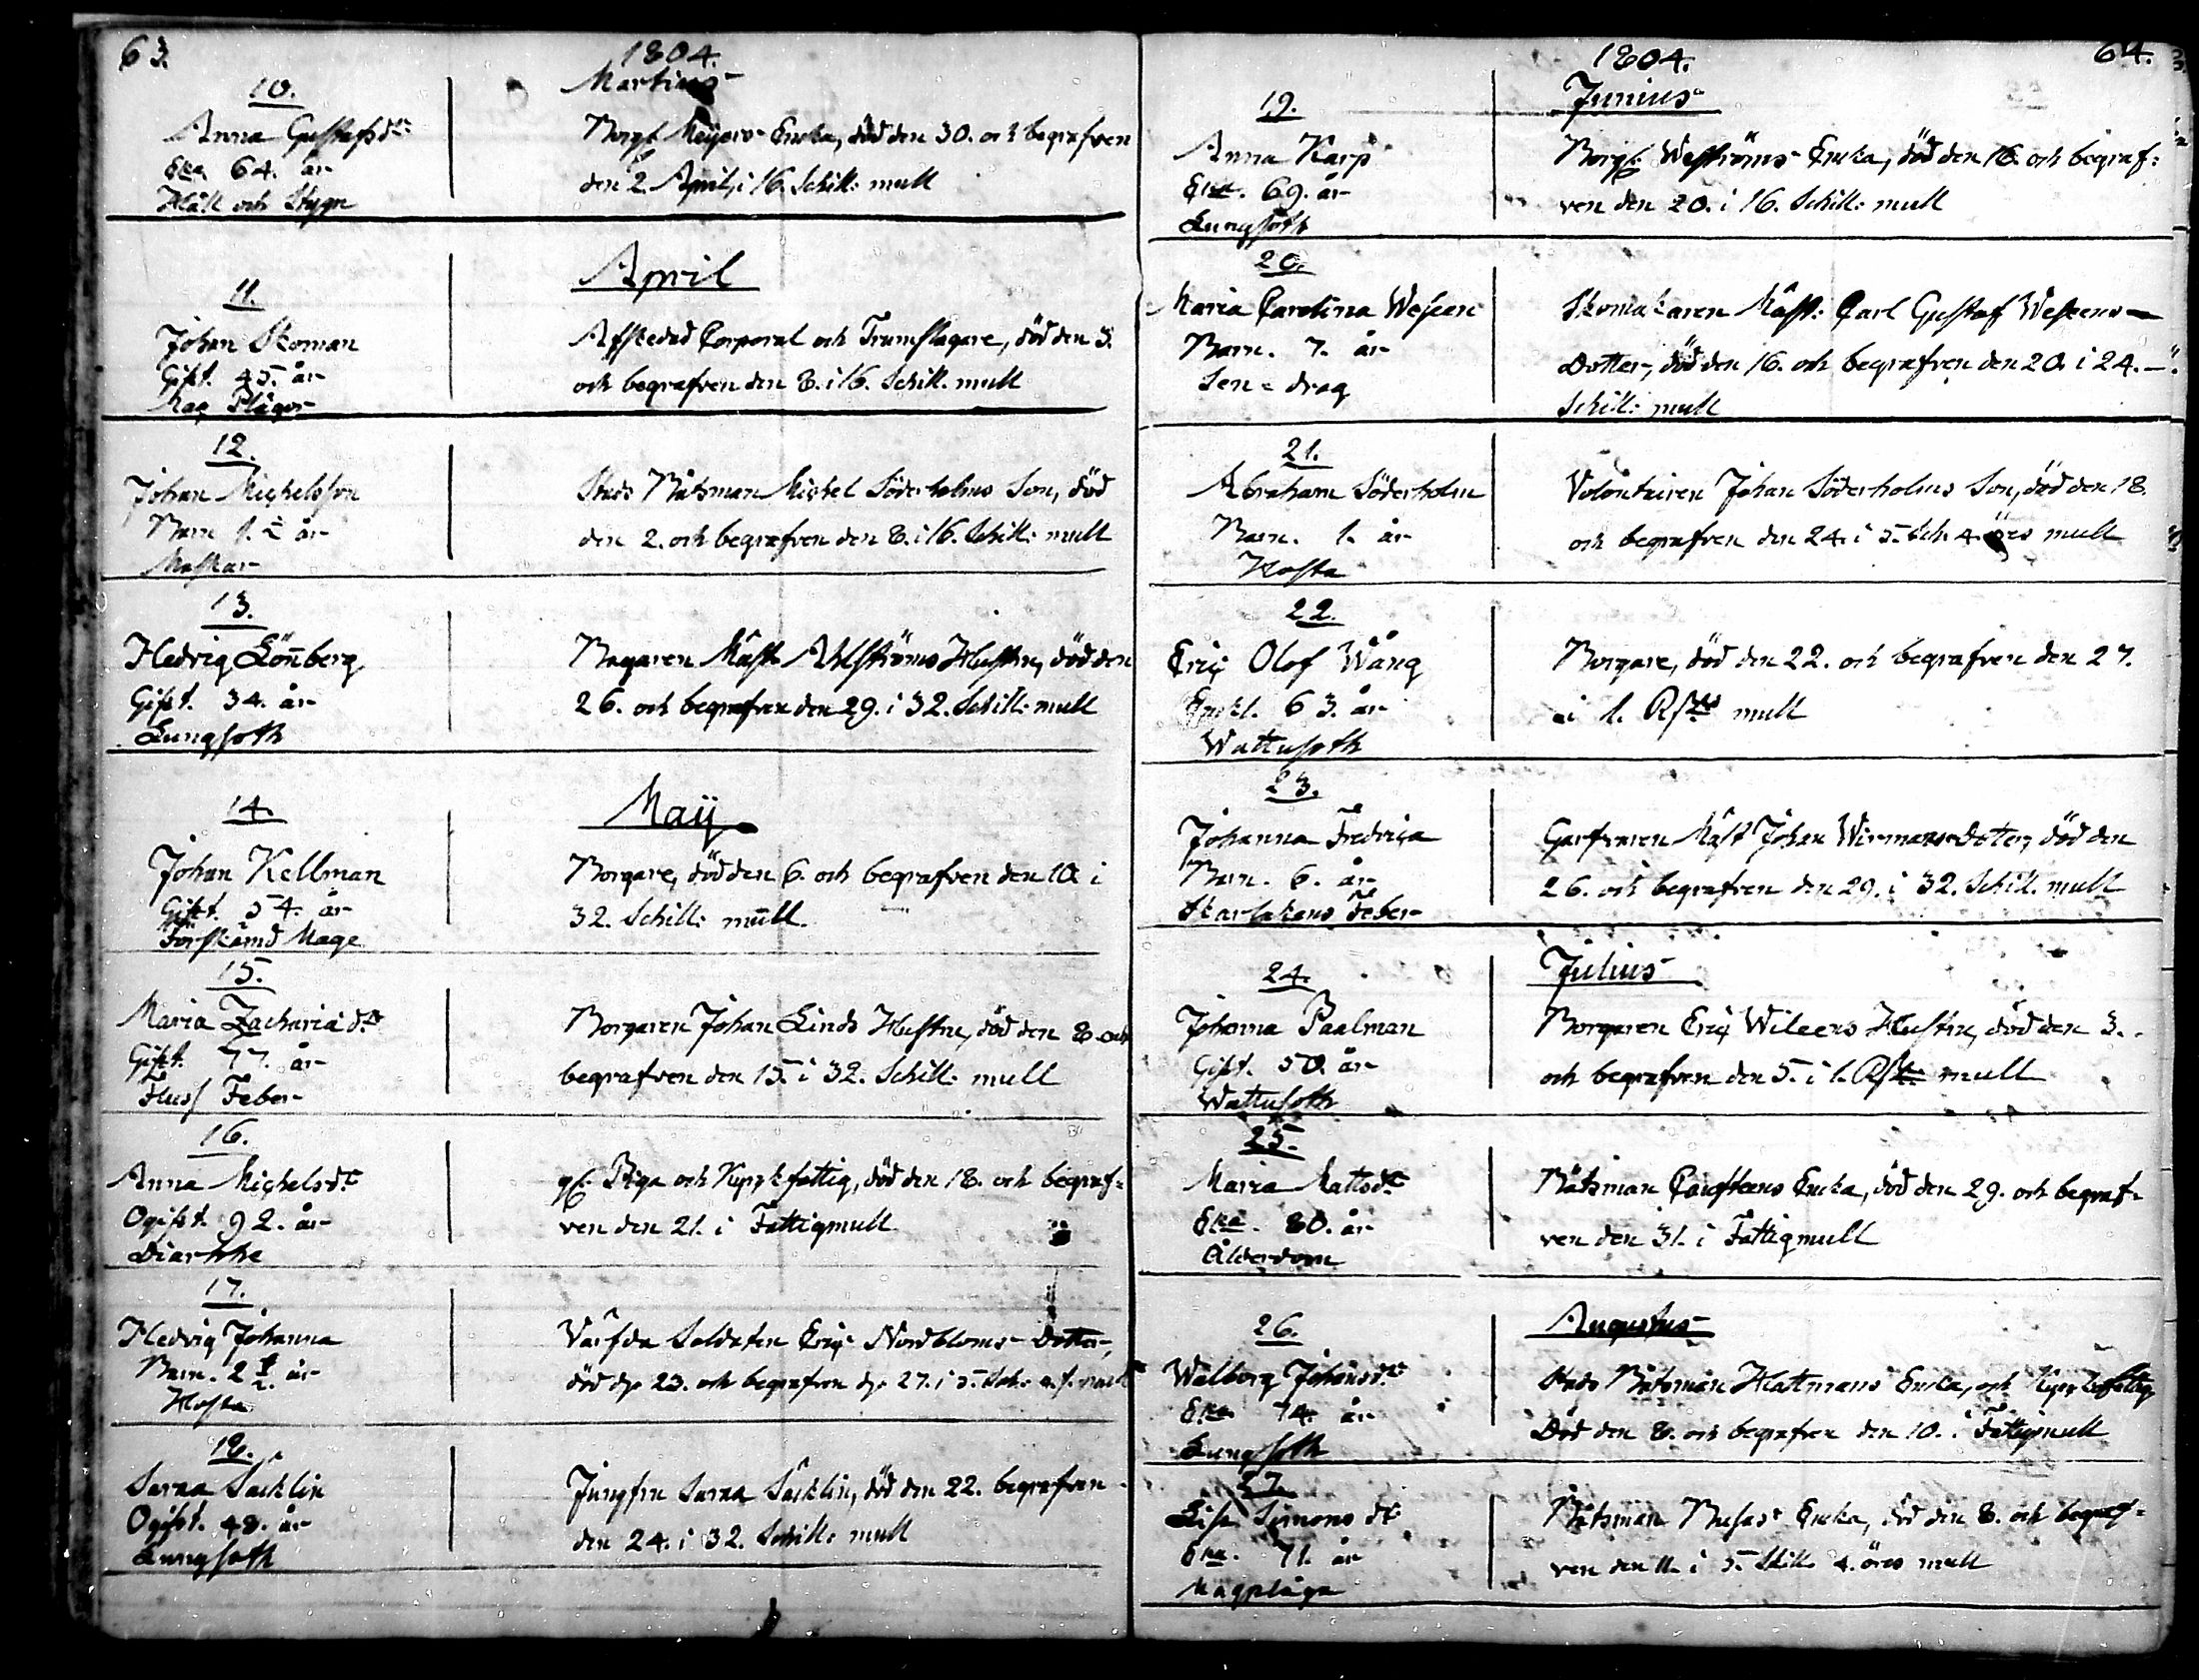 63.
1804.
Martius
10.
Anna Gustafsdr:
Eka. 64. år
Håll och Stygn
Borgr Meijers Encka, död den 30. och begrafven
den 2. April, i 16. Schill: mull
April
11.
Johan Skoman
Gift. 45. år
Mag Plågor
Afskedad Corporal och Trumslagare, död den 3.
och begrafven den 8. i 16. Schill. mull
12.
Johan Michelsson
Barn 1. ½ år
Maskar
Stads Båtsman Michel Söderholms Son, död
den 2. och begrafven den 8. i 16. Schill: mull
13.
Hedvig Lön̄berg
Gift. 34. år
Lungsoth
Bagaren Mäst. Ahlströms Hustru, död den
26. och begrafven den 29. i 32. Schill: mull
Maij
14.
Johan Kellman
Gift. 54. år
Förskämd Mage
Borgare, död den 6. och begrafven den 10. i
32. Schill: mull.
15.
Maria Zachariædr
Gift. 77. år
Fluss Feber
Borgaren Johan Linds Hustru, död den 8. och
begrafven den 15. i 32. Schill. mull
16.
Anna Michelsdr
Ogift. 92. år
Diarrhe
Piga och Kyrkfattig, död den 18. och begraf=
ven den 21. i Fattigmull
17.
Hedvig Johanna
Barn. 2 ½ år
Hosta
Värfda Soldaten Eric Nordbloms Dotter,
död d. 23. och begrafven d. 27. i 5. Sch: 4. mull
18.
Sarna Säcklin
Ogift. 48. år
Lungsoth
Jungfru Sarna Säcklin, död den 22. begrafven
den 24. i 32. Schill: mull
1804.
64.
Junius
19.
Anna Karp
Eka. 69. år
Lungsoth
Borgr. Weströms Encka, död den 16. och begraf=
ven den 20. i 16. Schill: mull
20.
Maria Carolina Weseen
Barn. 7. år
Sen=drag
Skomakaren Mäst: Carl Gustaf Weseens
Dotter, död den 16. och begrafven den 20. i 24.
Schill: mull
21.
Abraham Söderholm
Barn. 1. år
Hosta
Volontairen Johan Söderholms Son, död den 18.
och begrafven den 24. i 5. Sch. 4. öres mull
22.
Eric Olof Wång
Enckl. 63. år
Wattusoth
Borgare, död den 22. och begrafven den 27.
i 1. Rdrs mull
23.
Johanna Fredrica
Barn. 6. år
Skarlakans Feber
Garfvaren Mäst Johan Wirmans Dotter, död den
26. och begrafven den 29. i 32. Schill. mull
Julius
24.
Johanna Paalman
Gift. 50. år
Wattusoth
Borgaren Eric Wileens Hustru, död den 3.
och begrafven den 5. i 1. Rdr: mull
25.
Maria Mattsdr
Eka. 80. år
Ålderdom
Båtsman Encka, död den 29. och begraf=
ven den 31. i Fattigmull
Augustus
26.
Walborg Johansdr
Eka 74. år
Lungsoth
Stads Båtsman Hattmans Encka, och Kyrckofattig
Död den 8. och begrafven den 10. i Fattigmull
27.
Lisa Simons dr
Eka. 71. år
Magplåga
Båtsman Encka, död den 8. och begraf=
ven den 11. i 5. Skill. 4. öres mull